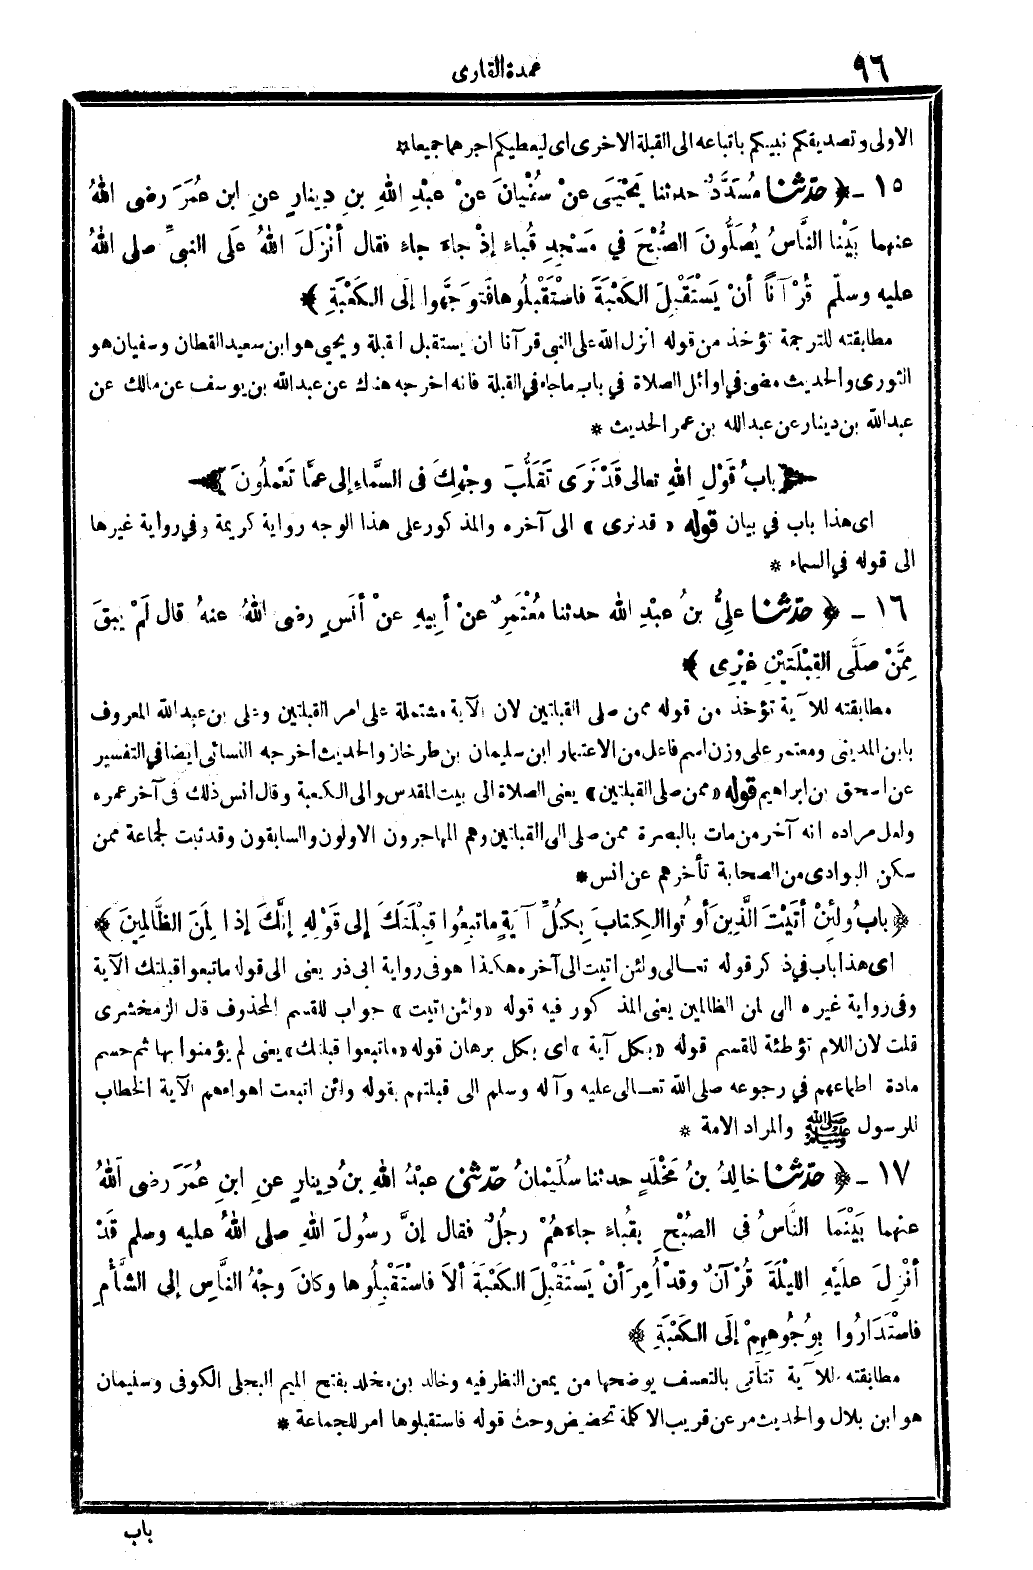 ٩٦
عمدة القارى
الاولى وتصديقكم نبيكم باتباعه الى القبلة الاخرى اى ليعطيكم اجرهما جميعا *
١٥ - ﴿ حدّثنا مُسَدَّدٌ حدثنا يَحْيَى عنْ سُفْيانَ عنْ عبْدِ اللهِ بنِ دِينارٍ عنِ ابن عُمَرَ رضى اللهُ
عنهما بَيْنا النَّاسُ يُصَلُّونَ الصُّبْحَ في مَسْجِدِ قُباءٍ إذْ جاءَ جاءٍ فقال أنْزَلَ اللهُ عَلَى النبيِّ صلى اللهُ
عليه وسلّم قُرْآناً أنْ يَسْتَقْبِلَ الكَعْبَةَ فاسْتَقْبِلُوها فَتوَجَّهوا إلَى الكَعْبَةِ ﴾
مطابقته للترجمة تؤخذ من قوله انزل الله على النبى قرآنا ان يستقبل القبلة ويحيى هو ابن سعيد القطان وسفيان هو
الثورى والحديث مضى في اوائل الصلاة في باب ماجاء في القبلة فانه اخرجه هناك عن عبدالله بن يوسف عن مالك عن
عبدالله بن دينار عن عبدالله بن عمر الحديث *
﴿ بابُ قَوْلِ اللهِ تعالى قَدْ نَرَى تَقَلُّبَ وجْهِكَ فى السَّماءِ إلى عمَّا تَعْمَلُونَ ﴾
اى هذا باب في بيان قوله « قد نرى » الى آخره والمذكور على هذا الوجه رواية كريمة وفي رواية غيرها
الى قوله في السماء *
١٦ - ﴿ حدّثنا علِيُّ بنُ عبْدِ الله حدثنا مُعْتَمِرٌ عنْ أبِيهِ عنْ أنَسٍ رضى اللهُ عنهُ قال لَمْ يبقَ
مِمَّنْ صَلَّى القِبْلَتَيْنِ غيْرِى ﴾
مطابقته للآية تؤخذ من قوله ممن صلى القبلتين لان الآية مشتملة على امر القبلتين وعلى بن عبدالله المعروف
بابن المدينى ومعتمر على وزن اسم فاعل من الاعتمار ابن سليمان بن طرخان والحديث اخرجه النسائى ايضا في التفسير
عن اسحق بن ابراهيم قوله «ممن صلى القبلتين» يعنى الصلاة الى بيت المقدس والى الكعبة وقال انس ذلك فى آخر عمره
ولعل مراده انه آخر من مات بالبصرة ممن صلى الى القبلتين وهم المهاجرون الاولون والسابقون وقد ثبت لجماعة ممن
سكن البوادى من الصحابة تأخرهم عن انس *
﴿ بابُ ولئِنْ أتَيْتَ الَّذِينَ أُوتُوا الكِتابَ بِكُلِّ آيَةٍ ماتَبِعُوا قِبْلَتَكَ إلى قَوْلِهِ إنَّكَ إذا لمَنَ الظَّالِمِينَ ﴾
اى هذا باب في ذكر قوله تعالى ولئن اتيت الى آخره هكذا هو فى رواية ابى ذر يعنى الى قوله ماتبعوا قبلتك الآية
وفى رواية غيره الى لمن الظالمين يعنى المذكور فيه قوله «ولئن اتيت» جواب للقسم المحذوف قال الزمخشرى
قلت لان اللام تؤطئة للقسم قوله «بكل آية» اى بكل برهان قوله «ماتبعوا قبلتك» يعنى لم يؤمنوا بها ثم حسم
مادة اطماعهم في رجوعه صلى الله تعالى عليه وآله وسلم الى قبلتهم بقوله ولئن اتبعت اهواءهم الآية الخطاب
للرسول ﷺ والمراد الامة *
١٧ - ﴿ حدّثنا خالِدُ بنُ مَخْلَدٍ حدثنا سُلَيْمانُ حدّثنى عبْدُ اللهِ بنُ دِينارٍ عنِ ابنِ عُمَرَ رضى اللهُ
عنهما بَيْنَما النَّاسُ في الصُّبْحِ بِقُباءٍ جاءَهُمْ رجُلٌ فقال إنَّ رسُولَ اللهِ صلى اللهُ عليه وسلم قَدْ
أُنْزِلَ علَيْهِ الليْلَةَ قُرْآنٌ وقدْ أُمِرَ أنْ يَسْتَقْبِلَ الكَعْبَةَ ألاَ فاسْتَقْبِلُوها وكانَ وجْهُ النَّاسِ إلى الشَّأْمِ
فاسْتَدَارُوا بِوُجُوهِهِمْ إلَى الكَعْبَةِ ﴾
مطابقته للآية تتأتى بالتعسف يوضحها من يمعن النظر فيه وخالد بن مخلد بفتح الميم البجلى الكوفى وسليمان
هو ابن بلال والحديث مر عن قريب الا كلمة تحضيض وحث قوله فاستقبلوها امر للجماعة *
باب